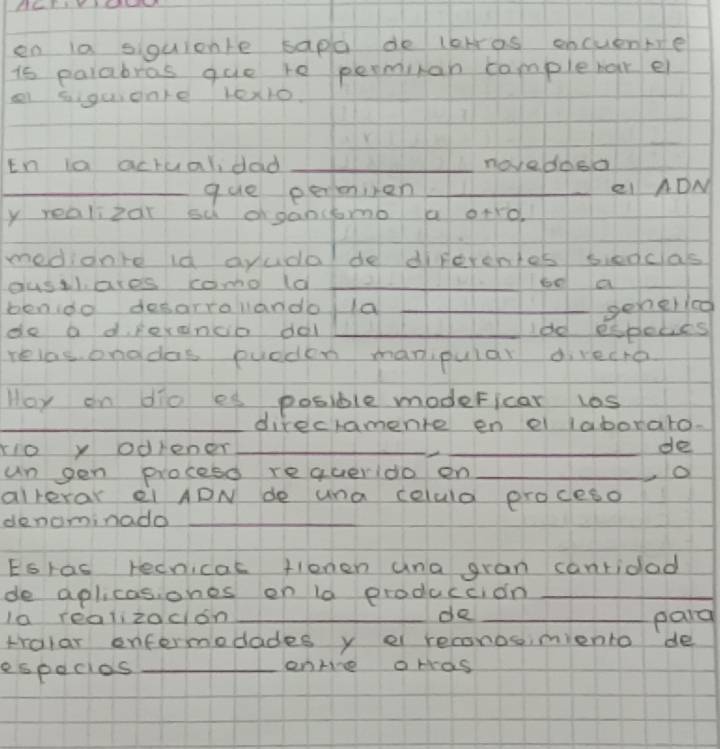 en la siguiente sapa de letras encuentre
15 palabras que te permitan completar el
el siguiente texto.
En la actualidad ____________ novedosa
____________ que permiten ____________ el ADN
y realizar su organismo a otro.
mediante la ayuda de diferentes siencias
ausiliares como la ____________ se a
benido desarrollando la ____________ generica
de a diferencia del ____________ de especies
relasionadas pueden manipular directa
Hoy en dia es posible modeficar los
____________ directamente en el laborato-
rio y odtener ____________, ____________ de
un gen proceso requerido en ____________, o
alterar el ADN de una celula proceso
denominado ____________
Estas tecnicas tienen una gran cantidad
de aplicasiones en la produccion ____________
la realizacion ____________ de ____________ para
tratar enfermedades y el reconosimiento de
especies ____________ entre otras